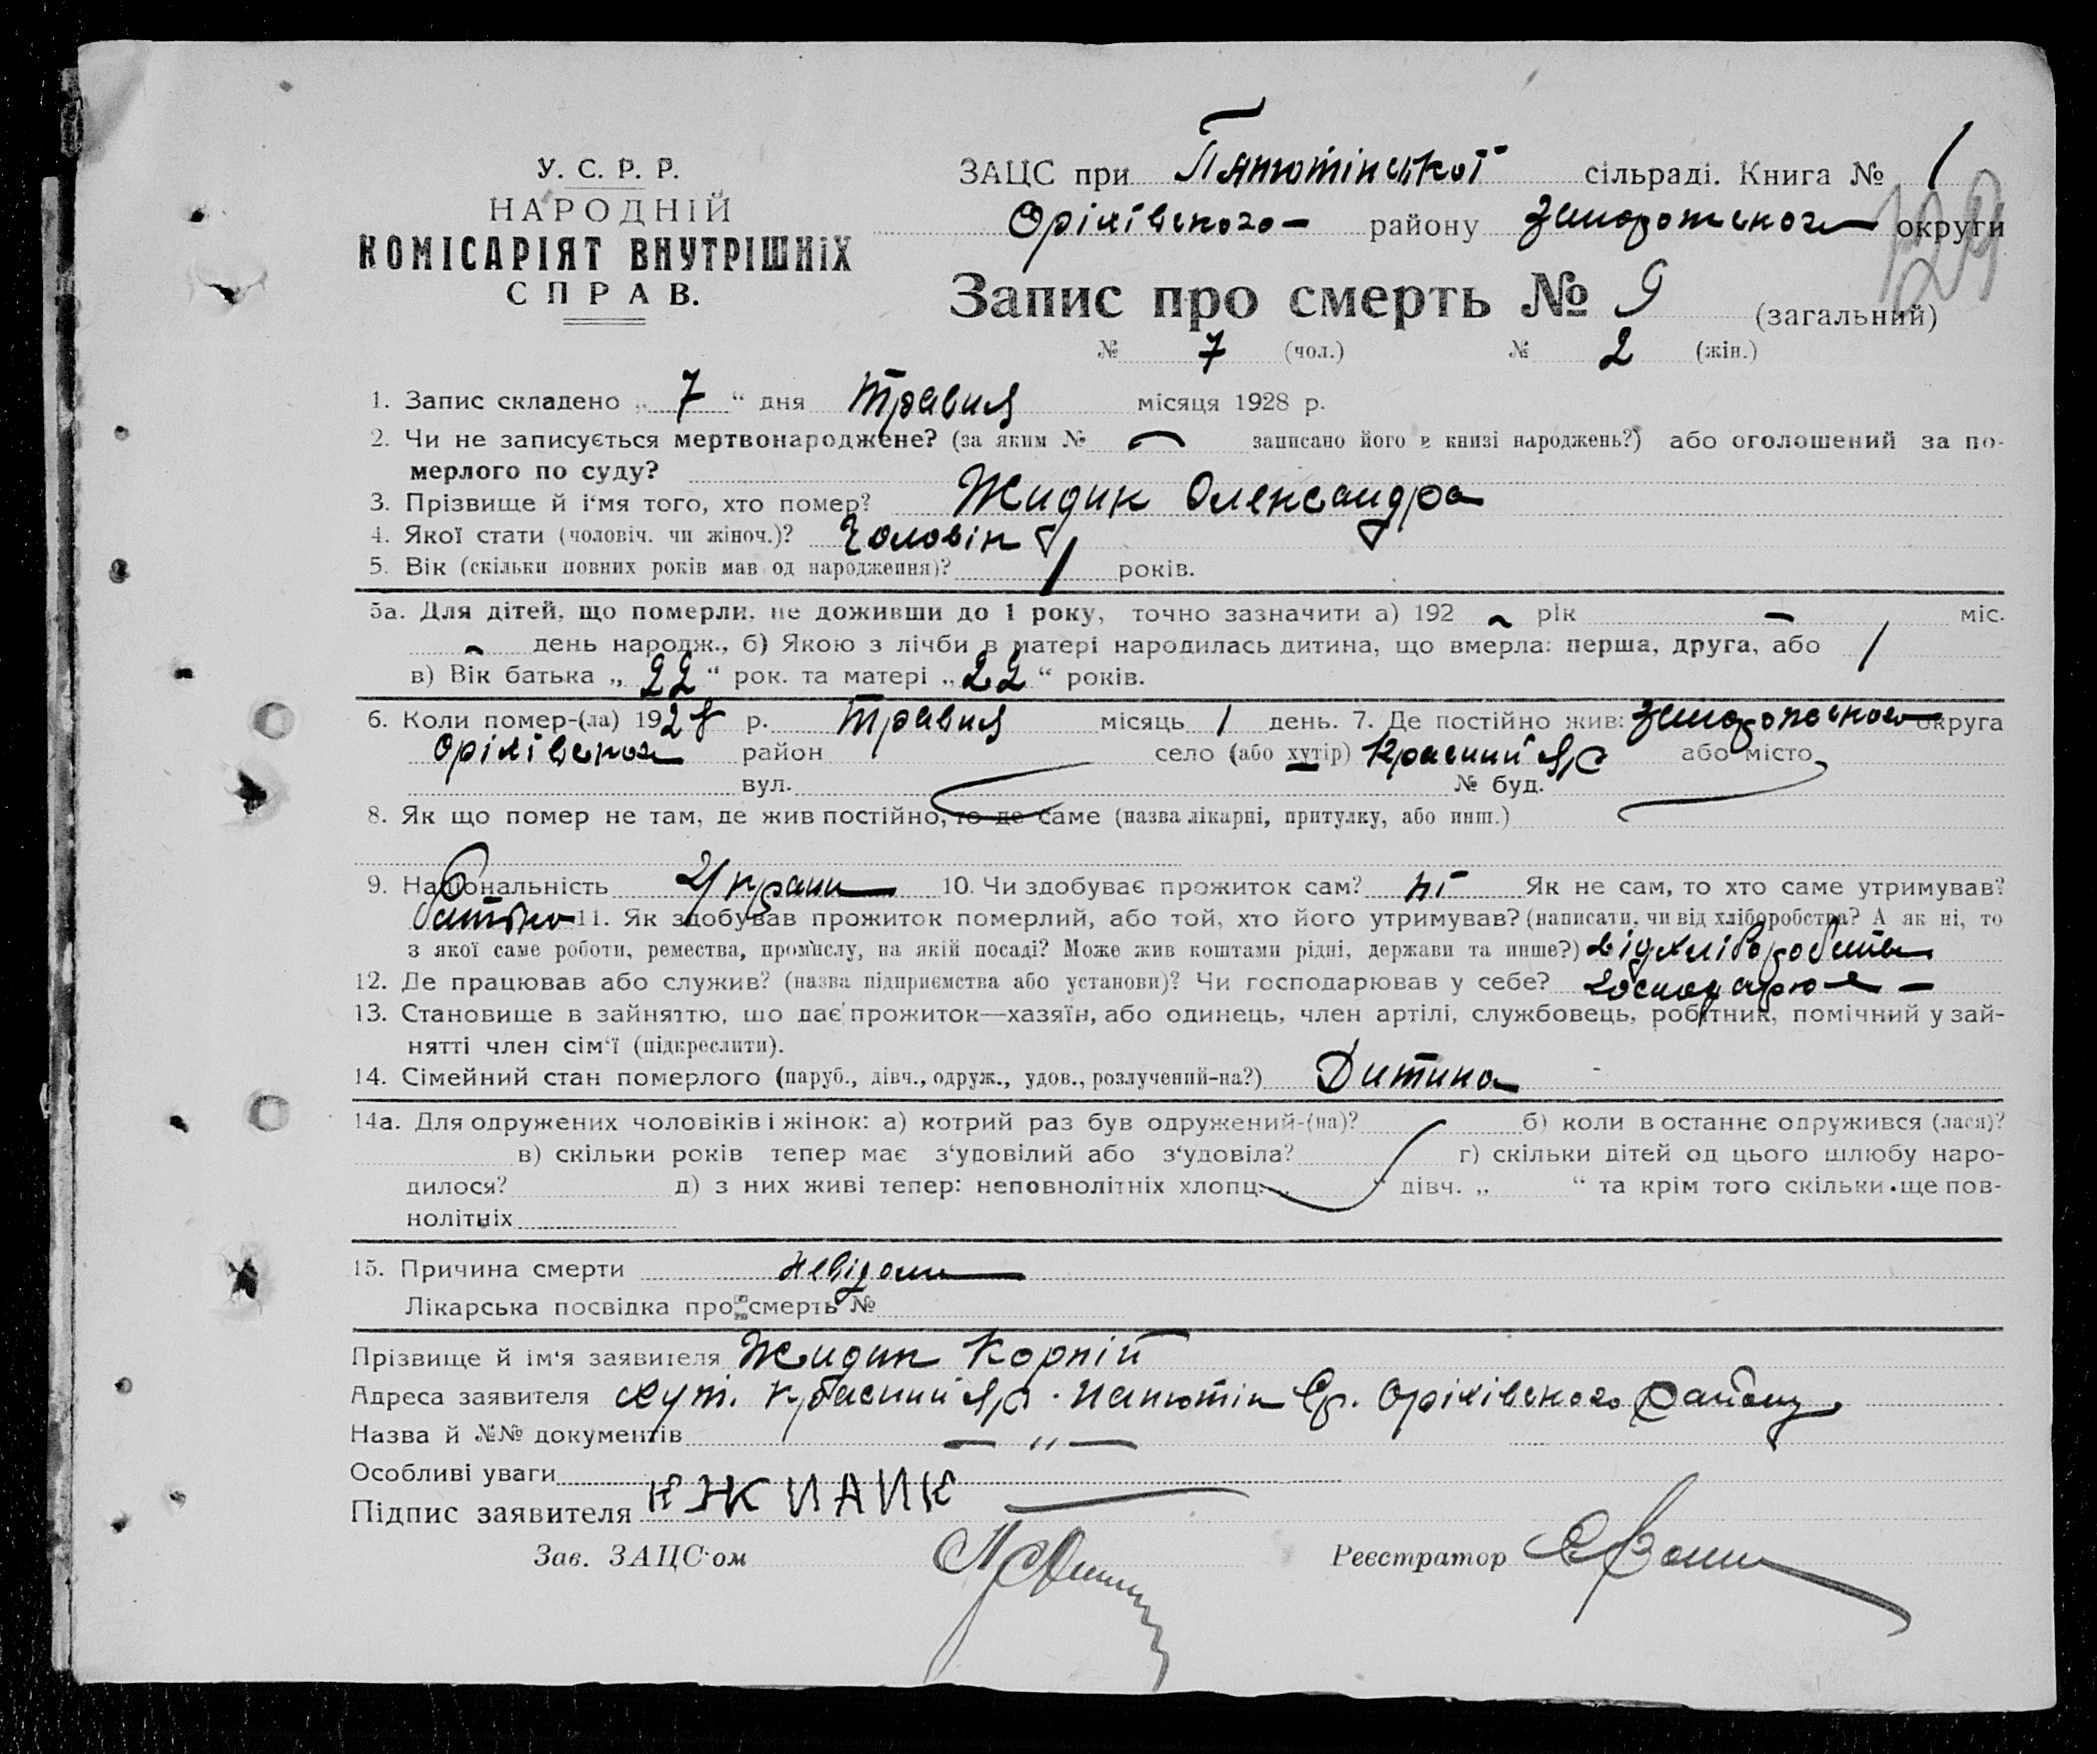 У. С. Р. Р.
НАРОДНІЙ
КОМІСАРІЯТ ВНУТРІШНІХ
СПРАВ.
ЗАЦС при Пантютінської сільраді. Книга № 1
Оріхівського району Запорожського округи
129
Запис про смерть № 9 (загальний)
№ 7 (чол.) № 2 (жін.)
1. Запис складено „ 7 “ дня Травня місяця 1928 р.
2. Чи не записується мертвонароджене? (за яким № — записано його в книзі народжень?) або оголошений за по-
мерлого по суду?
3. Прізвище й і‘мя того, хто помер? Жидик Олександра
4. Якої стати (чоловіч. чи жіноч.)? Чоловік
5. Вік (скільки повних років мав од народження)? 1 років.
5а. Для дітей, що померли, не доживши до 1 року, точно зазначити а) 192 - рік - міс.
- день народж., б) Якою з лічби в матері народилась дитина, що вмерла: перша, друга, або 1
в) Вік батька „ 22 “ рок. та матері „ 22 “ років.
6. Коли помер-(ла) 1928 р. Травня місяць 1 день. 7. Де постійно жив: Запорожського округа
Оріхівського район село (або хутір) Красний Яр або місто
вул. № буд.
8. Як що помер не там, де жив постійно, то де саме (назва лікарні, притулку, або инш.)
9. Національність Україн 10. Чи здобуває прожиток сам? ні Як не сам, то хто саме утримував?
батько 11. Як здобував прожиток померлий, або той, хто його утримував? (написати, чи від хліборобства? А як ні, то
з якої саме роботи, ремества, промислу, на якій посаді? Може жив коштами рідні, держави та инше?) від хліборобства
12. Де працював або служив? (назва підприємства або установи)? Чи господарював у себе? господарює —
13. Становище в зайняттю, що дає прожиток—хазяїн, або одинець, член артілі, службовець, робітник, помічний у зай-
нятті член сім‘ї (підкреслити).
14. Сімейний стан померлого (паруб., дівч., одруж., удов., розлучений-на?) Дитина
14а. Для одружених чоловіків і жінок: а) котрий раз був одружений-(на)? б) коли в останнє одружився (лася)?
в) скільки років тепер має з‘удовілий або з‘удовіла? г) скільки дітей од цього шлюбу наро-
дилося? д) з них живі тепер: неповнолітніх хлопц. „ “ дівч. „ “ та крім того скільки ще пов-
нолітніх
15. Причина смерти невідома
Лікарська посвідка про смерть №
Прізвище й ім‘я заявителя Жидик Корній
Адреса заявителя хут. Красний Яр. Оріхівського Району
Назва й №№ документів — „ —
Особливі уваги
Підпис заявителя К ЖИДИК
Зав. ЗАЦС‘ом Реєстратор